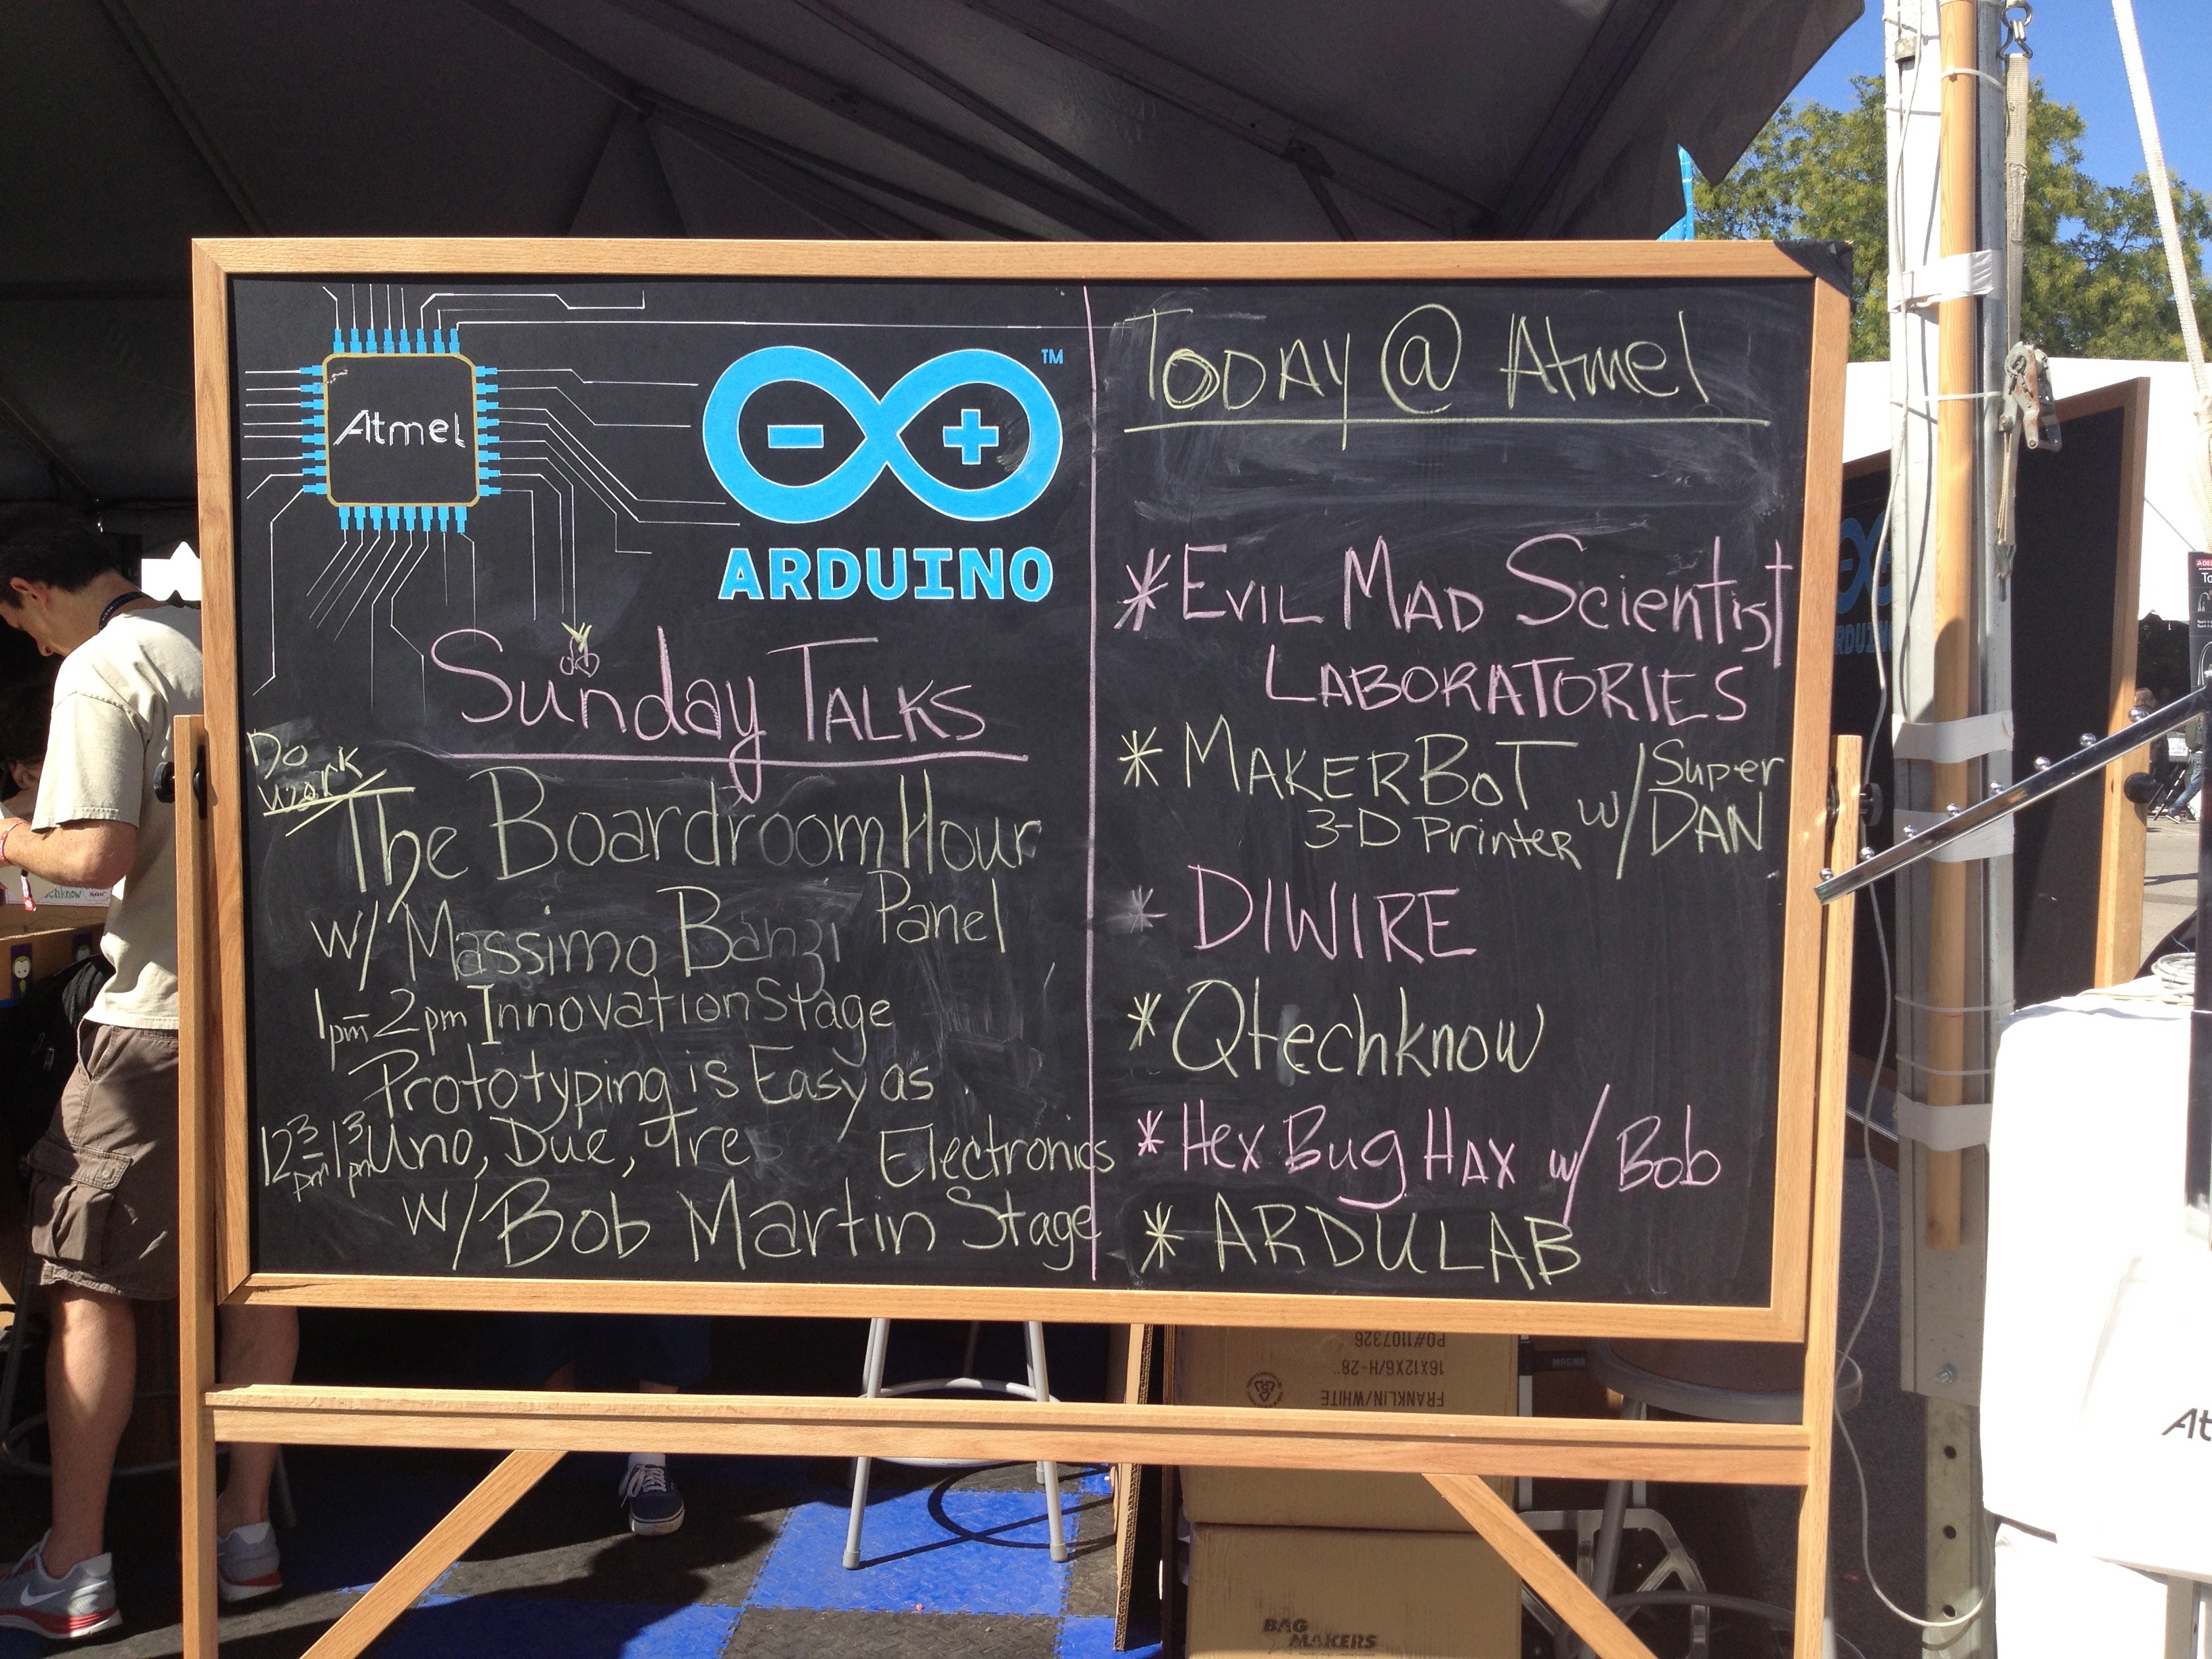 Atmel
TM
ARDUINO
Sunday TALKS
Do
Work
The Boardroom Hour
w/ Massimo Banzi Panel
1pm-2pm Innovation Stage
Prototyping is Easy as
Uno, Due, Tre Electronics
w/ Bob Martin Stage
TODAY @ Atmel
* EVIL MAD Scientist
LABORATORIES
* MAKERBOT w/ Super DAN
3-D Printer
* DIWIRE
* Qtechknow
* Hex Bug HAX w/ Bob
* ARDULAB
PO#1107326
16X12X6/H-28"
FRANKLIN/WHITE
BAG
MAKERS